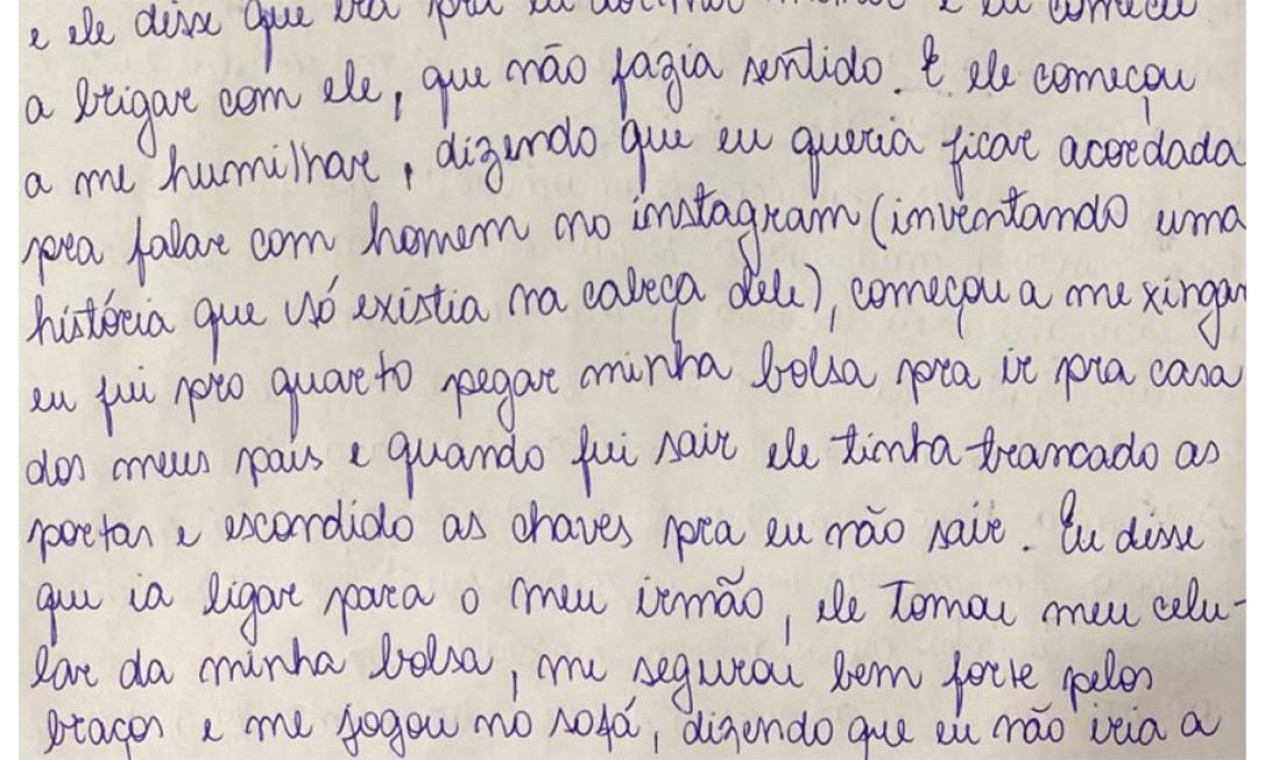 e ele disse que era pra eu dormir melhor e eu comecei
a brigar com ele, que não fazia sentido. E ele começou
a me humilhar, dizendo que eu queria ficar acordada
pra falar com homem no instagram (inventando uma
história que só existia na cabeça dele), começou a me xingar
eu fui pro quarto pegar minha bolsa pra ir pra casa
dos meus pais e quando fui sair ele tinha trancado as
portas e escondido as chaves pra eu não sair. Eu disse
que ia ligar para o meu irmão, ele tomou meu celu-
lar da minha bolsa, me segurou bem forte pelos
braços e me jogou no sofá, dizendo que eu não iria a